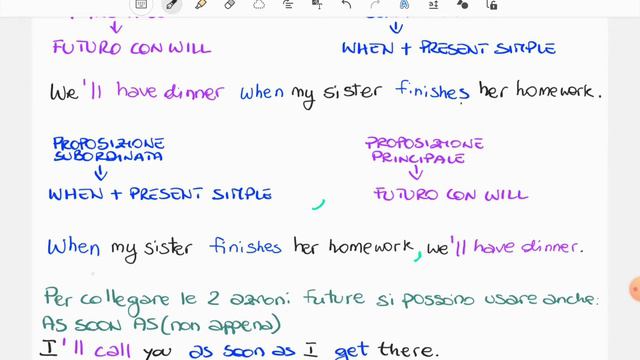 FUTURO CON WILL
WHEN + PRESENT SIMPLE
We'll have dinner when my sister finishes her homework.
PROPOSIZIONE SUBORDINATA
PROPOSIZIONE PRINCIPALE
WHEN + PRESENT SIMPLE , FUTURO CON WILL
When my sister finishes her homework, we'll have dinner.
Per collegare le 2 azioni future si possono usare anche:
AS SOON AS (non appena)
I'll call you as soon as I get there.